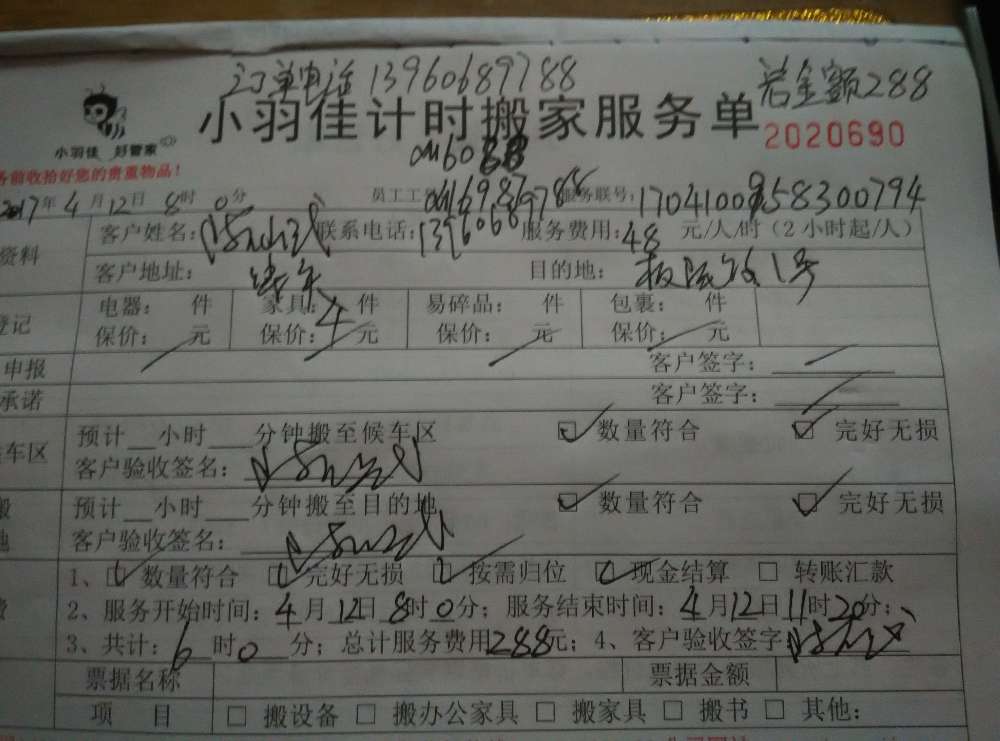 订单电话 13960689788 总金额288
小羽佳计时搬家服务单 2020690
小羽佳 好管家
务前收拾好您的贵重物品！
2017年4月12日8时0分 员工工 服务联号：
资料 客户姓名： 联系电话：13960689788 服务费用：48元/人/时（2小时起/人）
客户地址： 目的地：
登记 电器： 件 家具：4件 易碎品： 件 包裹： 件
保价： 元 保价： 元 保价： 元 保价： 元
申报 客户签字：
承诺 客户签字：
车区 预计__小时___分钟搬至候车区 ☑ 数量符合 ☑ 完好无损
客户验收签名：
搬 预计__小时___分钟搬至目的地 ☑ 数量符合 ☑ 完好无损
地 客户验收签名：
1、☑ 数量符合 ☑ 完好无损 ☑ 按需归位 ☑ 现金结算 □ 转账汇款
费 2、服务开始时间：4月12日8时0分；服务结束时间：4月12日11时20分；
3、共计：6时0分；总计服务费用288元；4、客户验收签字
票据名称 票据金额
项 目 □ 搬设备 □ 搬办公家具 □ 搬家具 □ 搬书 □ 其他：